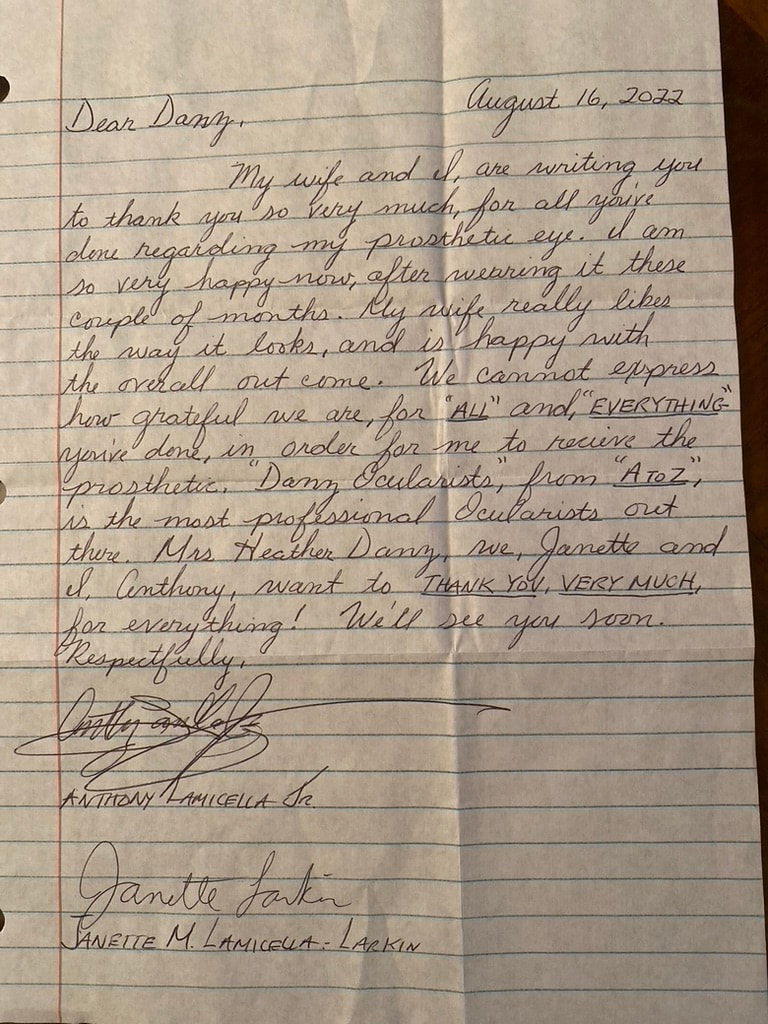 August 16, 2022
Dear Danz,
My wife and I, are writing you
to thank you so very much, for all you've
done regarding my prosthetic eye. I am
so very happy now, after wearing it these
couple of months. My wife really likes
the way it looks, and is happy with
the overall out come. We cannot express
how grateful we are, for "ALL" and, "EVERYTHING"
you've done, in order for me to recieve the
prosthetic. "Danz Ocularists", from "A TO Z",
is the most professional Ocularists out
there. Mrs Heather Danz, we, Janette and
I, Anthony, want to THANK YOU, VERY MUCH,
for everything! We'll see you soon.
Respectfully,
ANTHONY LAMICELLA Jr.
Janette Larkin
JANETTE M. LAMICELLA-LARKIN